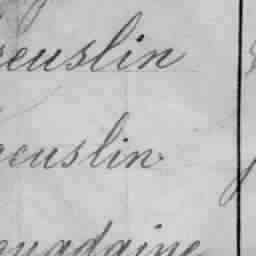 reuslin
reuslin
quadaine